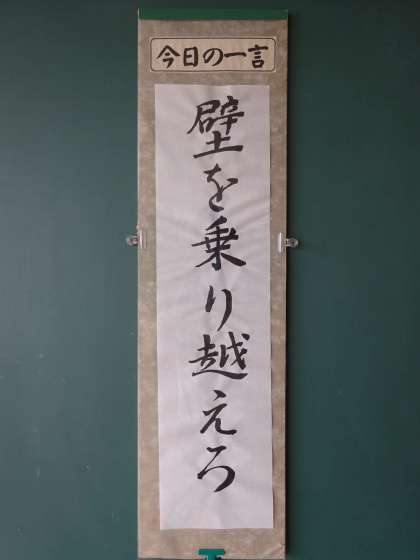 今日の一言
壁を乗り越えろ